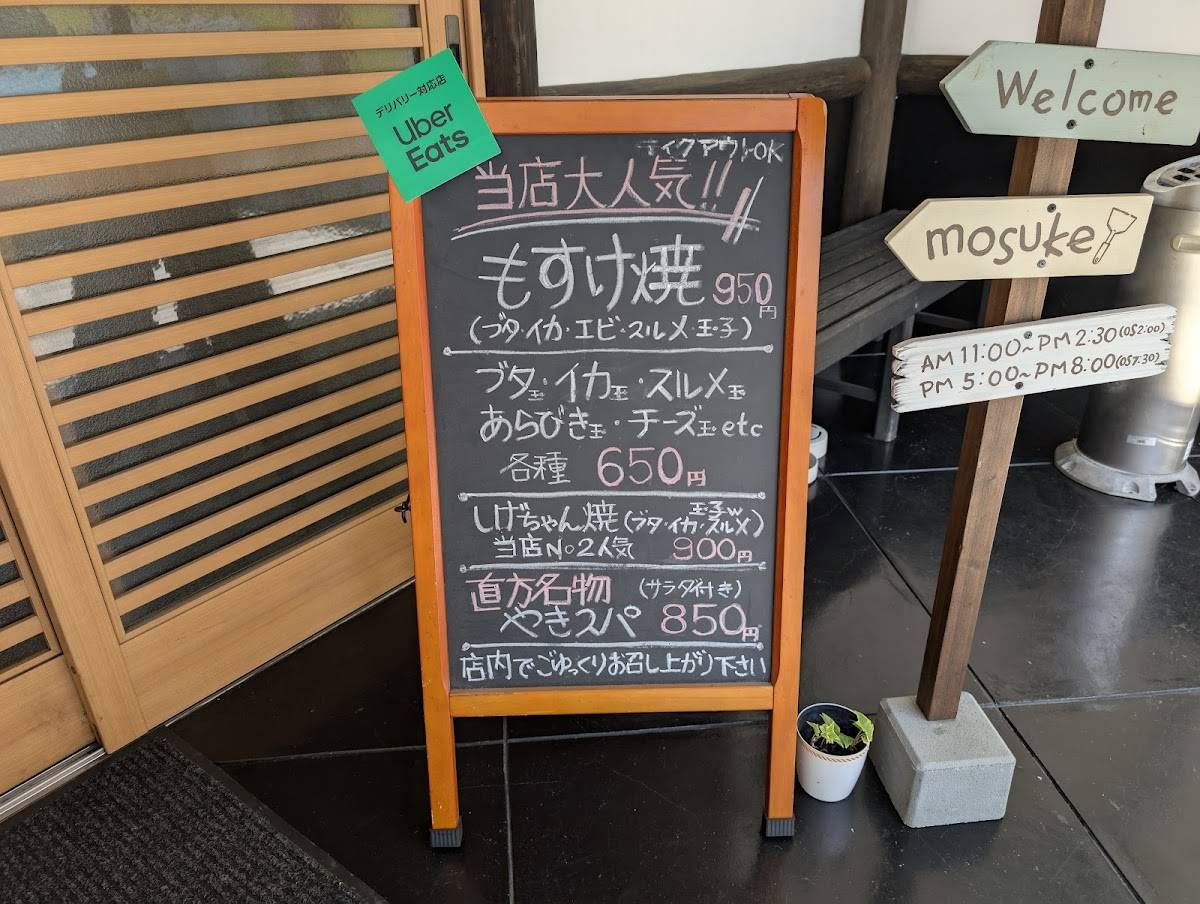 デリバリー対応店
Uber
Eats
テイクアウトOK
当店大人気!!
もすけ焼 950円
(ブタ・イカ・エビ・スルメ・玉子)
ブタ玉・イカ玉・スルメ玉
あらびき玉・チーズ玉 etc
各種 650円
しげちゃん焼(ブタ・イカ・スルメ)
玉子w
当店No2人気 900円
直方名物 (サラダ付き)
やきスパ 850円
店内でごゆっくりお召し上がり下さい
Welcome
mosuke
AM 11:00~PM 2:30(OS2:00)
PM 5:00~PM 8:00(OS7:30)